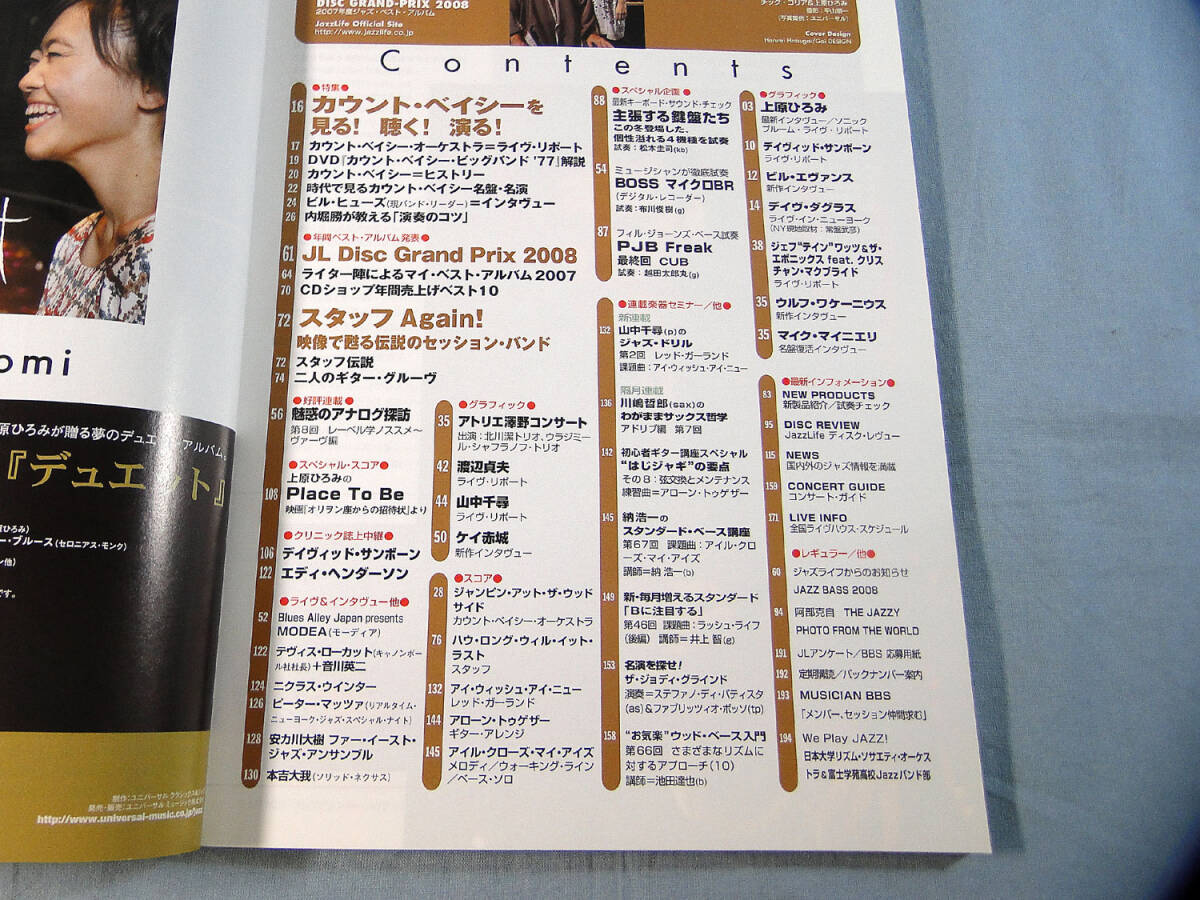 DISC GRAND-PRIX 2008
2007年度ジャズ・ベスト・アルバム
JazzLife Official Site
http://www.jazzlife.co.jp
チック・コリア&上原ひろみ
(写真提供:ユニバーサル)
Cover Design
Contents
●特集●
16 カウント・ベイシーを
見る! 聴く! 演る!
17 カウント・ベイシー・オーケストラ=ライヴ・リポート
19 DVD『カウント・ベイシー・ビッグバンド '77』解説
20 カウント・ベイシー=ヒストリー
22 時代で見るカウント・ベイシー名盤・名演
24 ビル・ヒューズ(現バンド・リーダー)=インタヴュー
26 内堀勝が教える「演奏のコツ」
●年間ベスト・アルバム発表●
61 JL Disc Grand Prix 2008
64 ライター陣によるマイ・ベスト・アルバム2007
70 CDショップ年間売上げベスト10
72 スタッフ Again!
映像で甦る伝説のセッション・バンド
72 スタッフ伝説
74 二人のギター・グルーヴ
●好評連載●
56 魅惑のアナログ探訪
第8回 レーベル学ノススメ〜
ヴァーヴ編
●スペシャル・スコア●
上原ひろみの
108 Place To Be
映画『オリヲン座からの招待状』より
●クリニック誌上中継●
106 デイヴィッド・サンボーン
122 エディ・ヘンダーソン
●ライヴ&インタヴュー他●
52 Blues Alley Japan presents
MODEA(モーディア)
122 テヴィス・ローカット(キャノンボー
ル社社長)+音川英二
124 ニクラス・ウインター
126 ピーター・マッツァ(リアルタイム・
ニューヨーク・ジャズ・スペシャル・ナイト)
128 安カ川大樹 ファー・イースト・
ジャズ・アンサンブル
130 本吉大我(ソリッド・ネクサス)
●グラフィック●
35 アトリエ澤野コンサート
出演:北川潔トリオ、ウラジミー
ル・シャフラノフ・トリオ
42 渡辺貞夫
ライヴ・リポート
44 山中千尋
ライヴ・リポート
50 ケイ赤城
新作インタヴュー
●スコア●
28 ジャンピン・アット・ザ・ウッド
サイド
カウント・ベイシー・オーケストラ
76 ハウ・ロング・ウィル・イット・
ラスト
スタッフ
132 アイ・ウィッシュ・アイ・ニュー
レッド・ガーランド
144 アローン・トゥゲザー
ギター・アレンジ
145 アイル・クローズ・マイ・アイズ
メロディ/ウォーキング・ライン
/ベース・ソロ
●スペシャル企画●
88 最新キーボード・サウンド・チェック
主張する鍵盤たち
この冬登場した、
個性溢れる4機種を試奏
試奏:松本圭司(kb)
54 ミュージシャンが徹底試奏
BOSS マイクロBR
(デジタル・レコーダー)
試奏:布川俊樹(g)
87 フィル・ジョーンズ・ベース試奏
PJB Freak
最終回 CUB
試奏:越田太郎丸(g)
●連載楽器セミナー/他●
新連載
132 山中千尋(p)の
ジャズ・ドリル
第2回 レッド・ガーランド
課題曲:アイ・ウィッシュ・アイ・ニュー
隔月連載
136 川嶋哲郎(sax)の
わがままサックス哲学
アドリブ編 第7回
142 初心者ギター講座スペシャル
"はじジャギ"の要点
その8:弦交換とメンテナンス
練習曲=アローン・トゥゲザー
145 納浩一の
スタンダード・ベース講座
第67回 課題曲:アイル・クロ
ーズ・マイ・アイズ
講師=納 浩一(b)
149 新・毎月増えるスタンダード
「Bに注目する」
第46回 課題曲:ラッシュ・ライフ
(後編) 講師=井上 智(g)
153 名演を探せ!
ザ・ジョディ・グラインド
演奏=ステファノ・ディ・バティスタ
(as)&ファブリッツィオ・ボッソ(tp)
158 "お気楽"ウッド・ベース入門
第66回 さまざまなリズムに
対するアプローチ(10)
講師=池田達也(b)
●グラフィック●
03 上原ひろみ
最新インタヴュー/ソニック
ブルーム・ライヴ・リポート
10 デイヴィッド・サンボーン
ライヴ・リポート
12 ビル・エヴァンス
新作インタヴュー
14 デイヴ・ダグラス
ライヴ・イン・ニューヨーク
(NY現地取材:常盤武彦)
38 ジェフ"テイン"ワッツ&ザ・
エボニックス feat. クリス
チャン・マクブライド
ライヴ・リポート
35 ウルフ・ワケーニウス
新作インタヴュー
35 マイク・マイニエリ
名盤復活インタヴュー
●最新インフォメーション●
83 NEW PRODUCTS
新製品紹介/試奏チェック
95 DISC REVIEW
JazzLife ディスク・レヴュー
115 NEWS
国内外のジャズ情報を満載
159 CONCERT GUIDE
コンサート・ガイド
171 LIVE INFO
全国ライヴハウス・スケジュール
●レギュラー/他●
60 ジャズライフからのお知らせ
JAZZ BASS 2008
94 阿部克自 THE JAZZY
PHOTO FROM THE WORLD
191 JLアンケート/BBS 応募用紙
192 定期購読/バックナンバー案内
193 MUSICIAN BBS
「メンバー、セッション仲間求む」
194 We Play JAZZ!
日本大学リズム・ソサエティ・オーケス
トラ&富士学苑高校Jazzバンド部
omi
原ひろみが贈る夢のデュエット・アルバム。
『デュエット』
ひろみ)
ー・ブルース(セロニアス・モンク)
ン他)
です。
制作:ユニバーサル クラシックス&ジャズ
発売・販売:ユニバーサル ミュージック株式会社
http://www.universal-music.co.jp/jazz